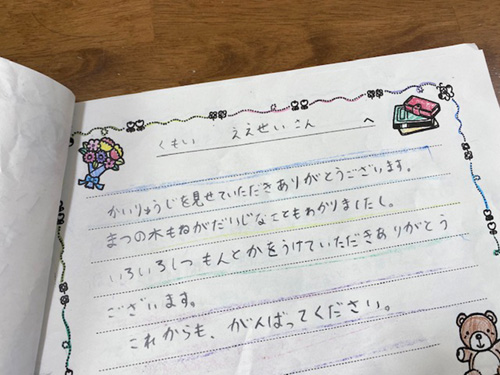 くもい ええせいこん へ
かいりゅうじを見せていただきありがとうございます。
まつの木もねがだいじなこともわかりましたし。
いろいろしつもんとかをうけていただきありがとう
ございます。
これからも、がんばってください。